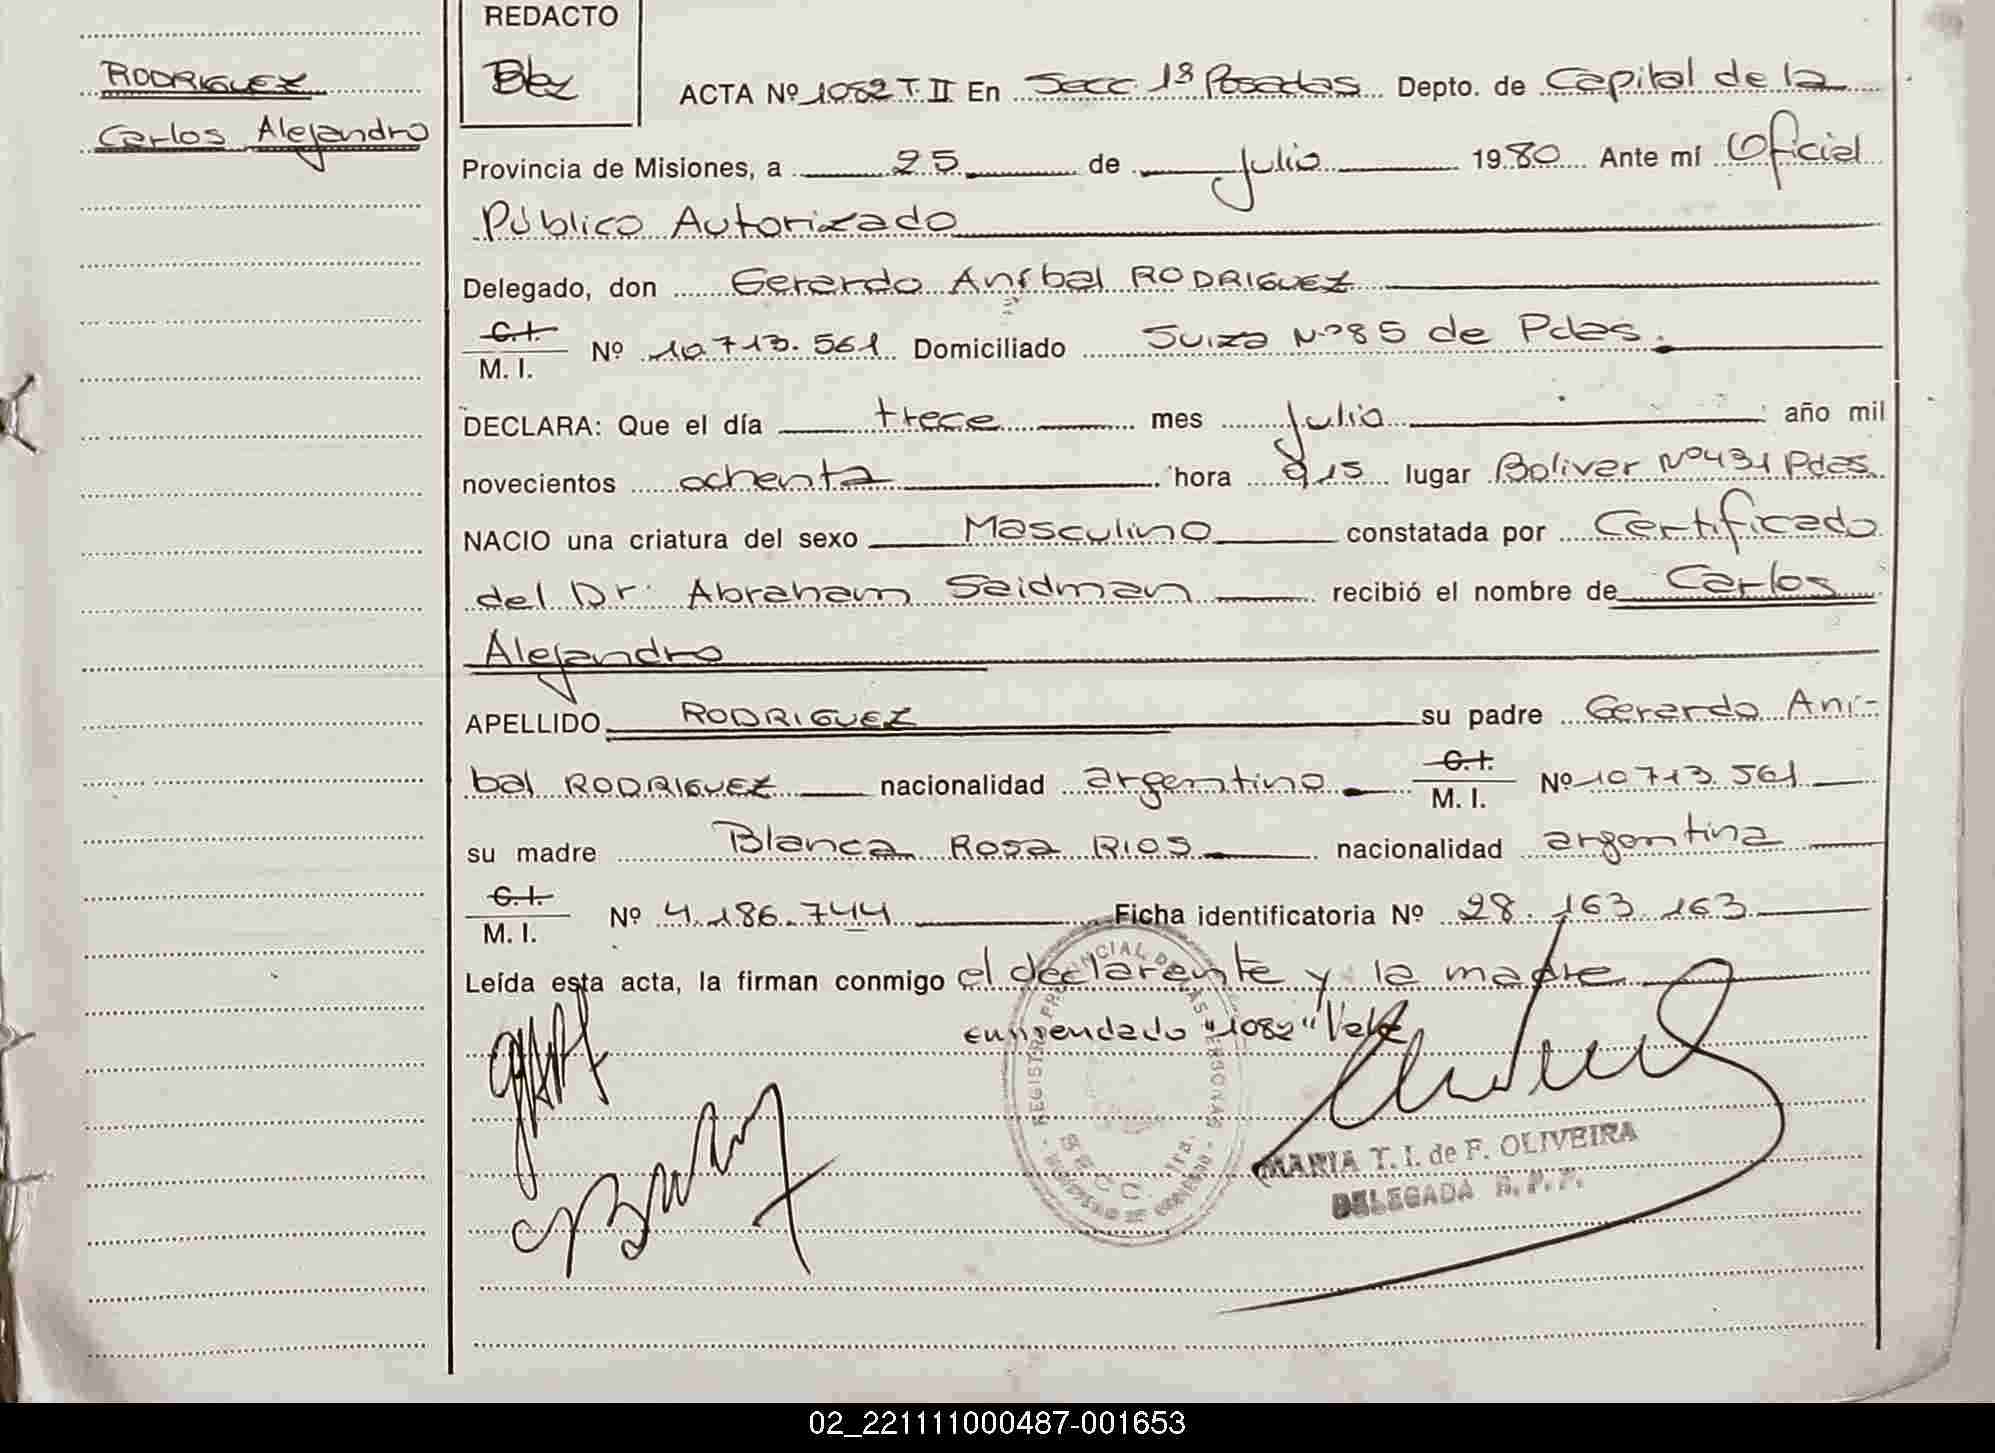 RODRIGUEZ
Carlos Alejandro
REDACTO
ACTA Nº 1082 T. II En Secc. 1ª Posadas Depto. de Capital de la
Provincia de Misiones, a 25 de Julio 1980 Ante mí Oficial
Público Autorizado
Delegado, don Gerardo Aníbal RODRIGUEZ
C.I.
M. I. Nº 10.713.561 Domiciliado Suiza Nº 85 de Pdas.
DECLARA: Que el día trece mes Julio año mil
novecientos ochenta hora 9 15 lugar Bolivar Nº 431 Pdas
NACIO una criatura del sexo Masculino constatada por Certificado
del Dr. Abraham Seidman recibió el nombre de Carlos
Alejandro
APELLIDO RODRIGUEZ su padre Gerardo Aní-
bal RODRIGUEZ nacionalidad argentino C.I. M. I. Nº 10.713.561
su madre Blanca Rosa RIOS nacionalidad argentina
C.I.
M. I. Nº 4.186.744 Ficha identificatoria Nº 28.163.163
Leída esta acta, la firman conmigo el declarante y la madre
enmendado "1082" Vale
REGISTRO PROVINCIAL DE LAS PERSONAS
SECC. 1ra.
MINISTERIO DE GOBIERNO
MARIA T. I. de F. OLIVEIRA
DELEGADA R. P. P.
02_221111000487-001653